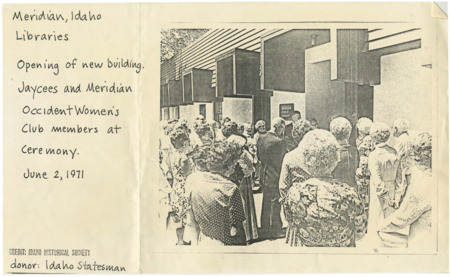 Meridian, Idaho
Libraries
Opening of new building.
Jaycees and Meridian
Occident Women's
Club members at
Ceremony.
June 2, 1971
CREDIT: IDAHO HISTORICAL SOCIETY
donor: Idaho Statesman